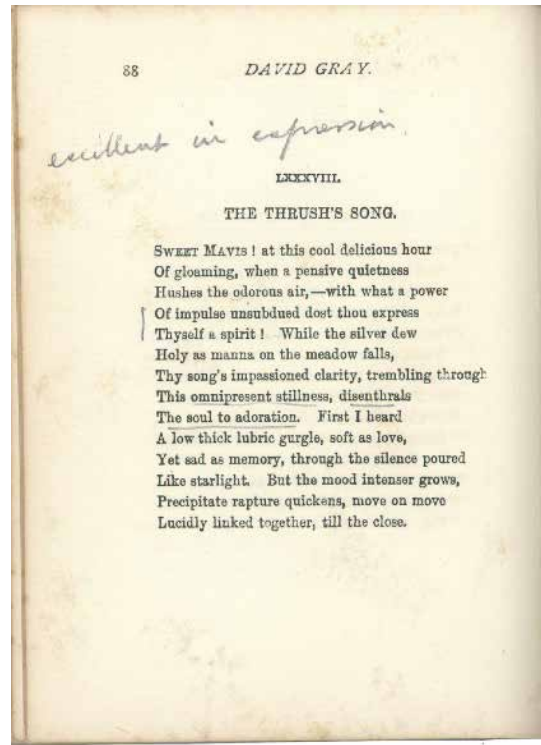 88 DAVID GRAY.
excellent in expression.
LXXXVIII.
THE THRUSH'S SONG.
SWEET MAVIS ! at this cool delicious hour
Of gloaming, when a pensive quietness
Hushes the odorous air,—with what a power
Of impulse unsubdued dost thou express
Thyself a spirit ! While the silver dew
Holy as manna on the meadow falls,
Thy song's impassioned clarity, trembling through
This omnipresent stillness, disenthrals
The soul to adoration. First I heard
A low thick lubric gurgle, soft as love,
Yet sad as memory, through the silence poured
Like starlight. But the mood intenser grows,
Precipitate rapture quickens, move on move
Lucidly linked together, till the close.